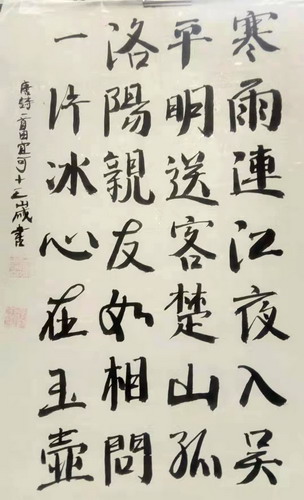 寒雨連江夜入吴
平明送客楚山孤
洛陽親友如相問
一片冰心在玉壺
唐詩一首田宜可十二歲書